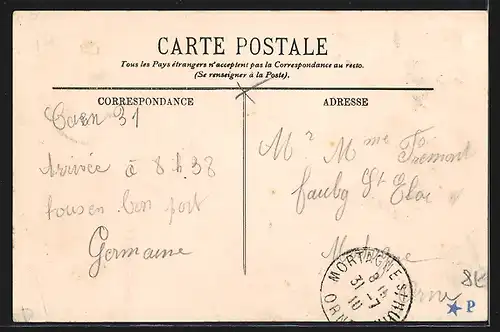 CARTE POSTALE
Tous les Pays étrangers n'acceptent pas la Correspondance au recto.
(Se renseigner à la Poste).
CORRESPONDANCE
ADRESSE
Caen 31
Arrivée à 8 h 38
tous en bon port
Germaine
Mr Mme Fremont
faubg St Eloi
Mortagne
Orne
MORTAGNE S HUI
8 15
31 -7
10
ORNE
P